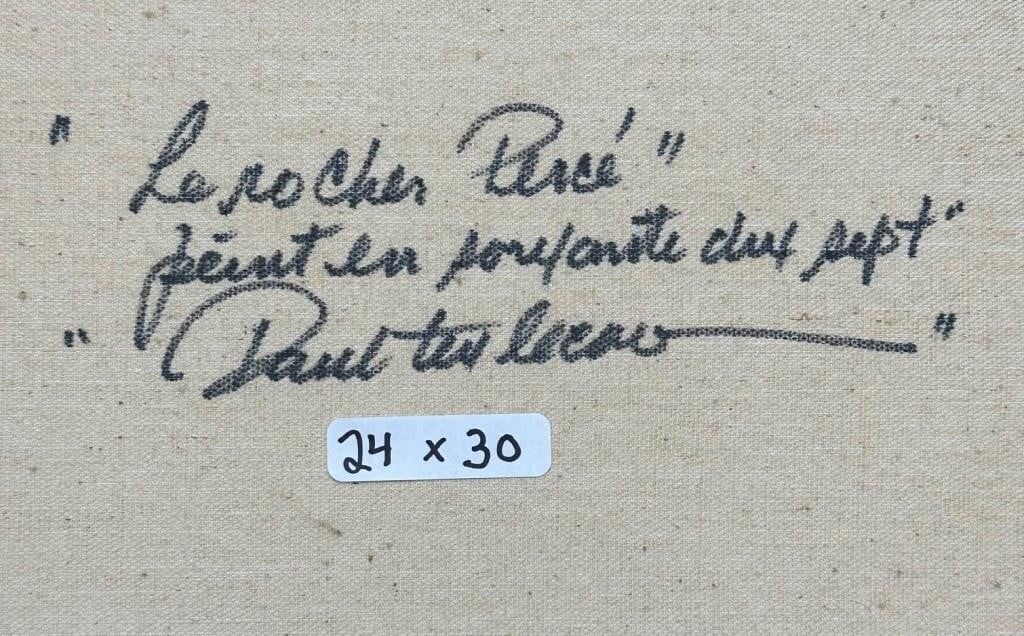 " Le rocher Percé "
peint en soixante dix sept "
" Paul tex lecor "
24 x 30